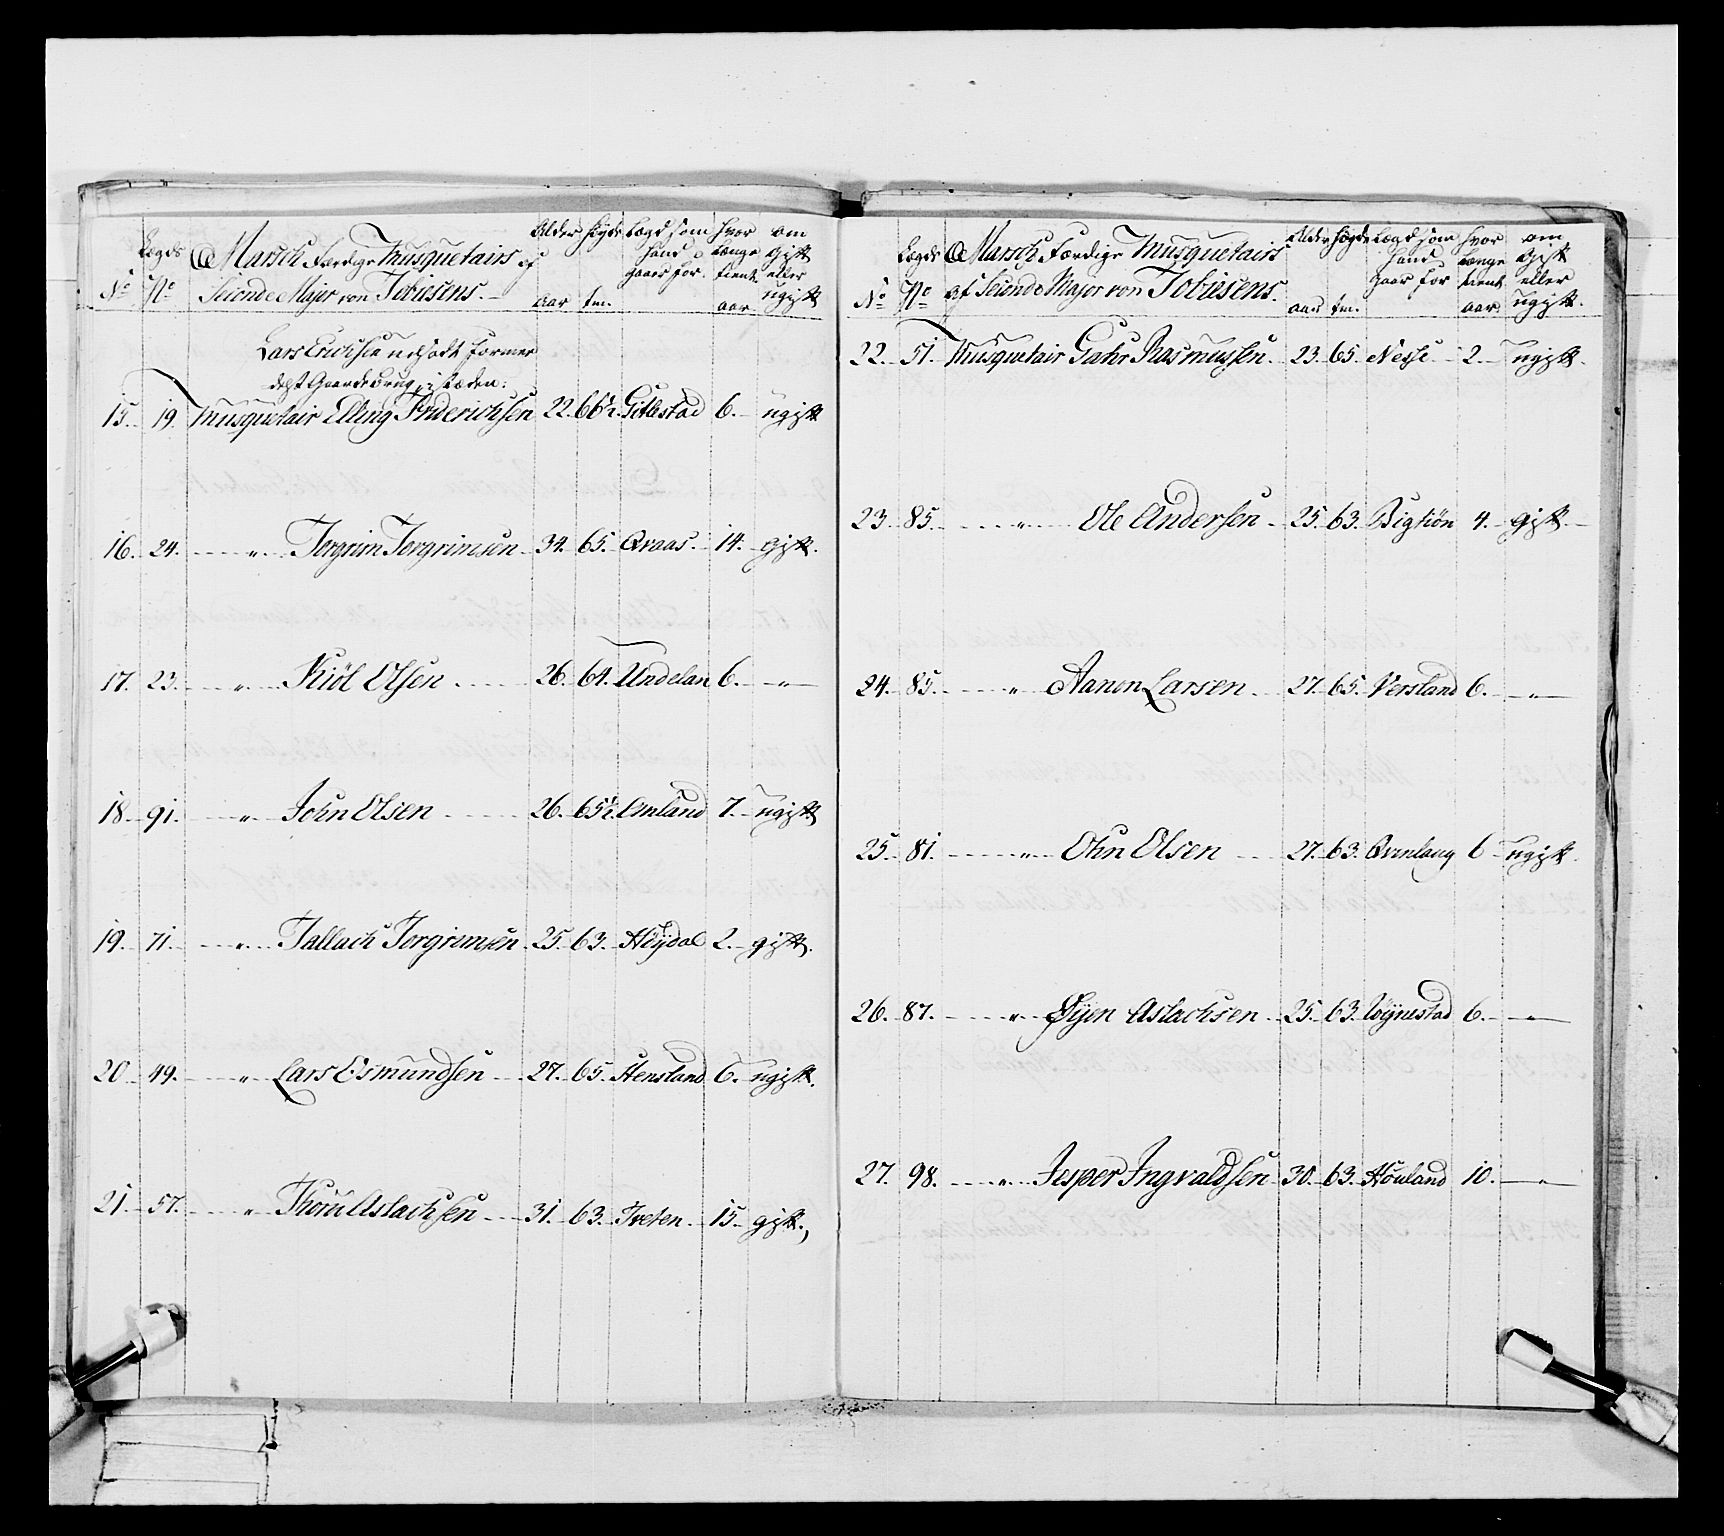 No
Legds No
Marsch Færdige Musquetairs af
Seconde Major von Tobiesens.
Alder aar
Høyde tm.
Legd som hand gaaer for.
hvor længe tient aar
om gift eller ugift
Lars Erichsen udsadt formedelst Gaardebrug, i stæden:
15. 19. Musquetair Elling Friderichsen 22. 66½. Gitlestad 6. ugift
16. 24. " Torgrim Torgrimsen 34. 65. Qvaas. 14. gift.
17. 23. " Kiöl Olsen 26. 64. Undelan 6. "
18. 91. " John Olsen 26. 65½. Omland 7. ugift
19. 71. " Tallach Torgrimsen 25. 63. Høydal 2. gift.
20. 49. " Lars Osmundsen 27. 65. Hensland 6. ugift.
21. 57. " Thom Aslachsen 31. 63. Tveten. 15. gift.
No
Legds No
Marsch Færdige Musquetairs
af Seconde Major von Tobiesens.
Alder aar
Høyde tm.
Legd som hand gaar for
hvor længe tient aar
om gift eller ugift.
22. 51. Musquetair Gahr Rasmussen. 23. 65. Nesse 2. ugift.
23. 85. " Ole Andersen 25. 63. Bigtiön 4. gift
24. 85. " Aanon Larsen 27. 65. Versland 6. "
25. 81. " Ohn Olsen 27. 63. Qvinlaug 6 ugift.
26. 87. " Øÿen Aslachsen 25. 63. Vøÿnestad 6. "
27. 98. " Jesper Ingvaldsen 30. 63. Houland 10. "